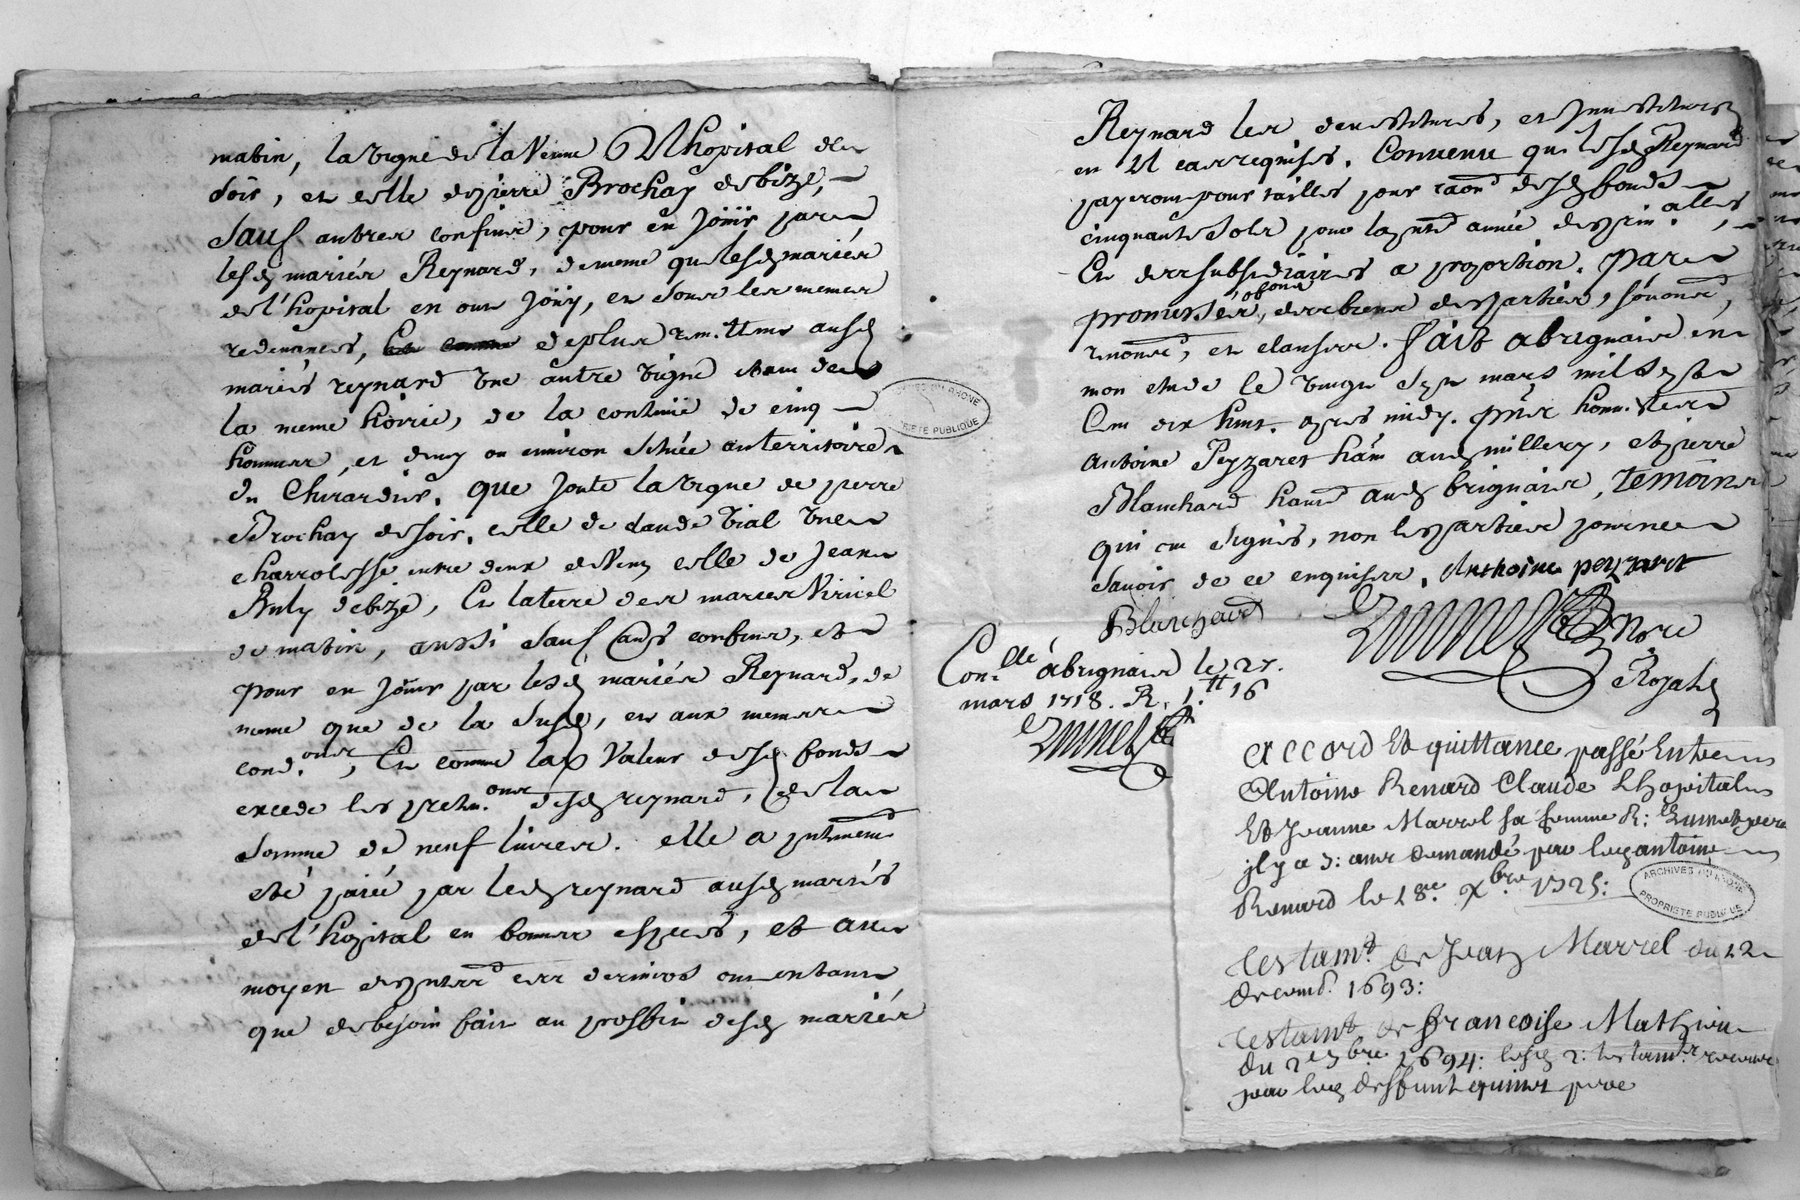 matin, la vigne de la Veuve Lhopital de
soir, et celle de pierre Brochay de bize,
sauf autres confins, pour en joüir par
lesd mariés Reynard, de meme que lesd mariés
de l'hopital en ont joüy, et sous les memes
redevances, de plus remettent ausd
mariés reynard une autre vigne de
la meme hoirie, de la contenüe de cinq
hommees, et demy ou environ située au territoire
du Chirardus, que jouste la vigne de pierre
Brochay de soir, celle de claude Vial une
charrolesse entre deux de vent celle de Jean
Buly de bize, Et la terre des maries Viricel
de matin, aussi sauf autres confins, et
pour en joüir par lesd mariés Reynard, de
meme que de la susd, et aux memes
cond.ons, Et comme la valeur desd fonds
excede les preten.ons desd reynard, de la
somme de neuf livres. elle a
eté païée par lesd reynard ausd mariés
de l'hopital en bonnes especes, et au
moyen de ont entant
que de besoin fait au proffit desd mariés
Reynard les devestitures, et Investitures
en tel cas requises. Convenu que lesd Reynard
payeront pour tailles pour raon desd fonds
cinquante sols pour la pnte année des prin.alles
Et des subsidiaires a proportion. par
promesses, obons des biens des parties, soumons,
renonons, et clauses. fait a brignais en
mon etude le vingt sept mars mil sept
Cent dix huit. apres midy. pnts honn.
Antoine Peyzaret hant aud millery, et pierre
Blanchard hant aud brignais, temoins
qui ont signés, non les parties pour ne
savoir de ce enquises. Anthoine peyzaret
Blanchard
Nore
Royal
Con.llé a brignais le 27.
mars 1718. R. 1.tt 16
accord Et quittance passé Entre
Antoine Renard Claude Lhopital
Et Jeanne Marrel sa femme R:
il y a 3: ans demandé par led antoine
Renard le 28.e xbre 1725:
ARCHIVES DU RHONE
PROPRIETE PUBLIQUE
testam.t de Jean Marrel du 22
decemb. 1693:
testam.t de francoise Mathieu
du 2e xbre 1694: lesd 2: testam.ts receus
par led deffunt quinet pere
ARCHIVES DU RHONE
PROPRIETE PUBLIQUE